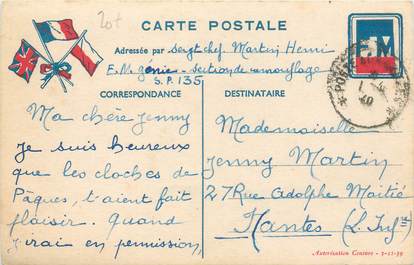 20t
CARTE POSTALE
F.M
Adressée par Sergt chef. Martin Henri
E.M. génie - section de camouflage
S.P. 135
CORRESPONDANCE
DESTINATAIRE
Ma chère Jenny
Je suis heureux
que les cloches de
Pâques, t'aient fait
plaisir. Quand
j'irai en permission,
Mademoiselle
Jenny Martin
27 Rue Adolphe Moitié
Nantes (L. Infre)
Autorisation Censure - 3-11-39